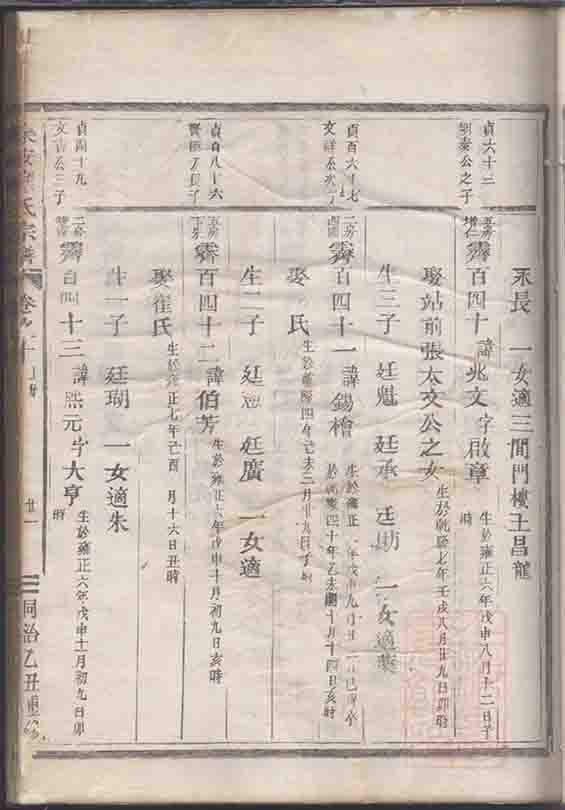 貞六十三
公之子
永長 一女適三間門樓王昌龍
五房
霽百四十 諱兆文字啟章 生於雍正六年戊申八月十二日子時
娶站前張太交公之女 生於乾隆七年壬戌八月廿九日卯時
貞百六十七
文祥公次子
生三子 廷魁 廷承 廷勷 一女適葉
二房
霽百四十一 諱錫檜 生於雍正 年戊申九月廿 日巳時
於乾隆四十年乙未閏十月十四日亥時
娶 氏 生於乾隆四年己未二月十九日子時
貞百八十六
公長子
生二子 廷 廷廣 一女適
五房
霽百四十二 諱伯芳 生於雍正六年戊申十月初九日亥時
娶崔氏 生於雍正七年己酉 月十六日丑時
生一子 廷瑚 一女適朱
貞四十九
文 公三子
二房
霽百四十三 諱熙元字大亨 生於雍正六年戊申十一月初九日卯時
氏宗譜 卷 廿一 同治乙丑重修